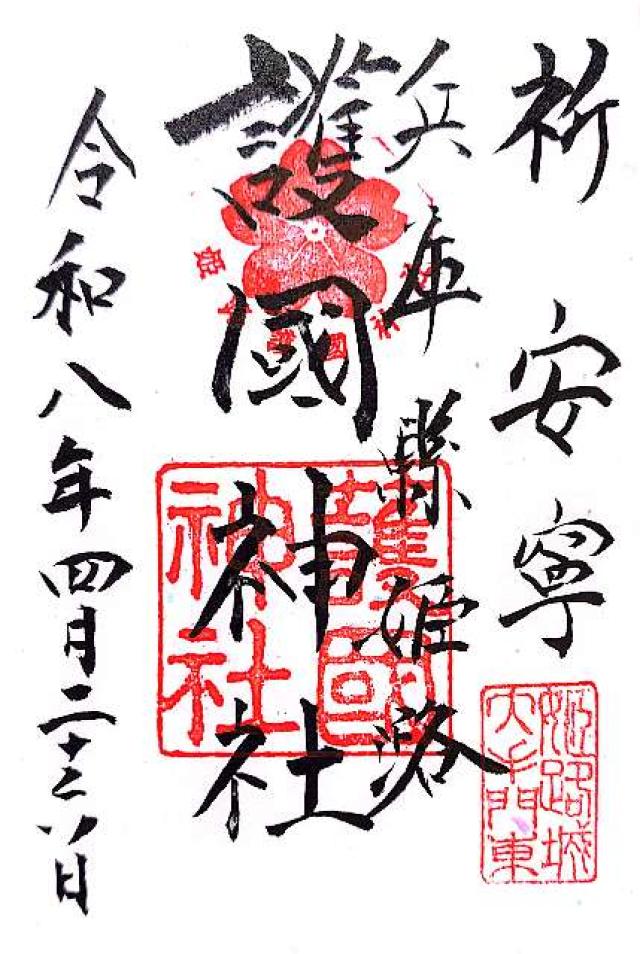 祈 安寧
姫路城
大手門東
兵庫縣姫路
護國神社
護國
神社
令和八年四月二十六日